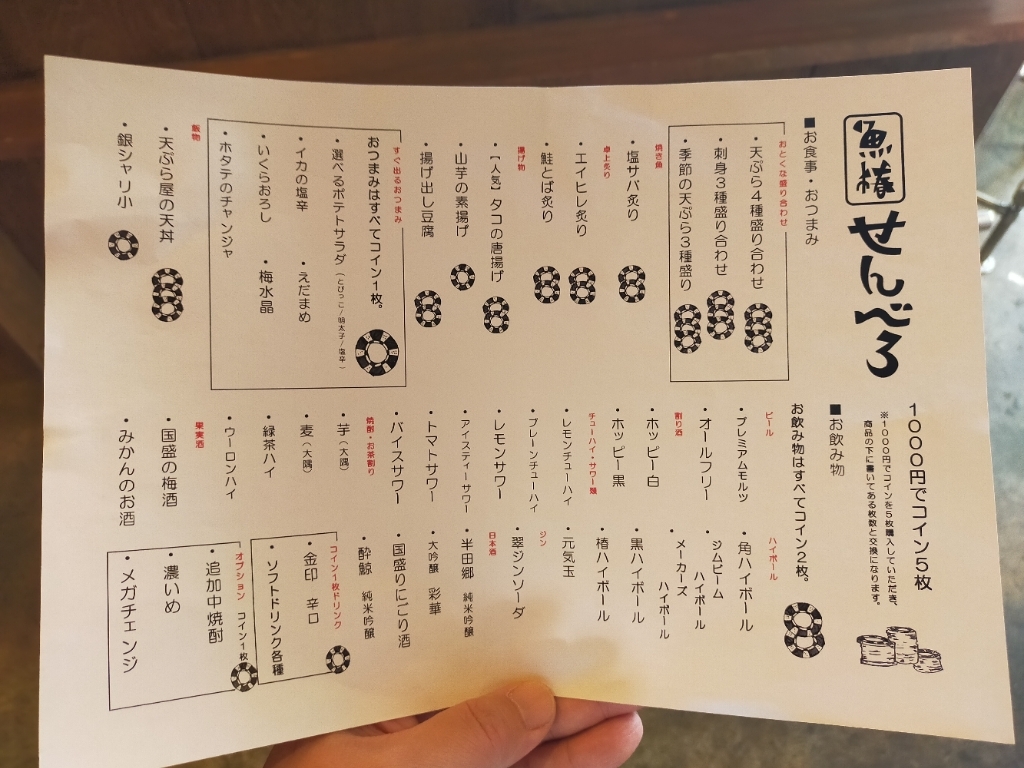 魚椿
せんべろ
1000円でコイン5枚
※1000円でコインを5枚購入していただき、
商品の下に書いてある枚数と交換になります。
■お食事・おつまみ
おとくな盛り合わせ
・天ぷら4種盛り合わせ
・刺身3種盛り合わせ
・季節の天ぷら3種盛り
焼き魚
・塩サバ炙り
卓上炙り
・エイヒレ炙り
・鮭とば炙り
揚げ物
・【人気】タコの唐揚げ
・山芋の素揚げ
・揚げ出し豆腐
すぐ出るおつまみ
おつまみはすべてコイン1枚。
・選べるポテトサラダ（とびっこ/明太子/塩辛）
・イカの塩辛
・えだまめ
・いくらおろし
・梅水晶
・ホタテのチャンジャ
飯物
・天ぷら屋の天丼
・銀シャリ小
■お飲み物
お飲み物はすべてコイン2枚。
ビール
・プレミアムモルツ
・オールフリー
割り酒
・ホッピー白
・ホッピー黒
チューハイ・サワー類
・レモンチューハイ
・プレーンチューハイ
・レモンサワー
・アイスティーサワー
・トマトサワー
・バイスサワー
焼酎・お茶割り
・芋（大隅）
・麦（大隅）
・緑茶ハイ
・ウーロンハイ
果実酒
・国盛の梅酒
・みかんのお酒
ハイボール
・角ハイボール
・ジムビーム
ハイボール
・メーカーズ
ハイボール
・黒ハイボール
・椿ハイボール
・元気玉
ジン
・翠ジンソーダ
日本酒
・半田郷 純米吟醸
・大吟醸 彩華
・国盛りにごり酒
・酔鯨 純米吟醸
コイン1枚ドリンク
・金印 辛口
・ソフトドリンク各種
オプション コイン1枚
・追加中焼酎
・濃いめ
・メガチェンジ